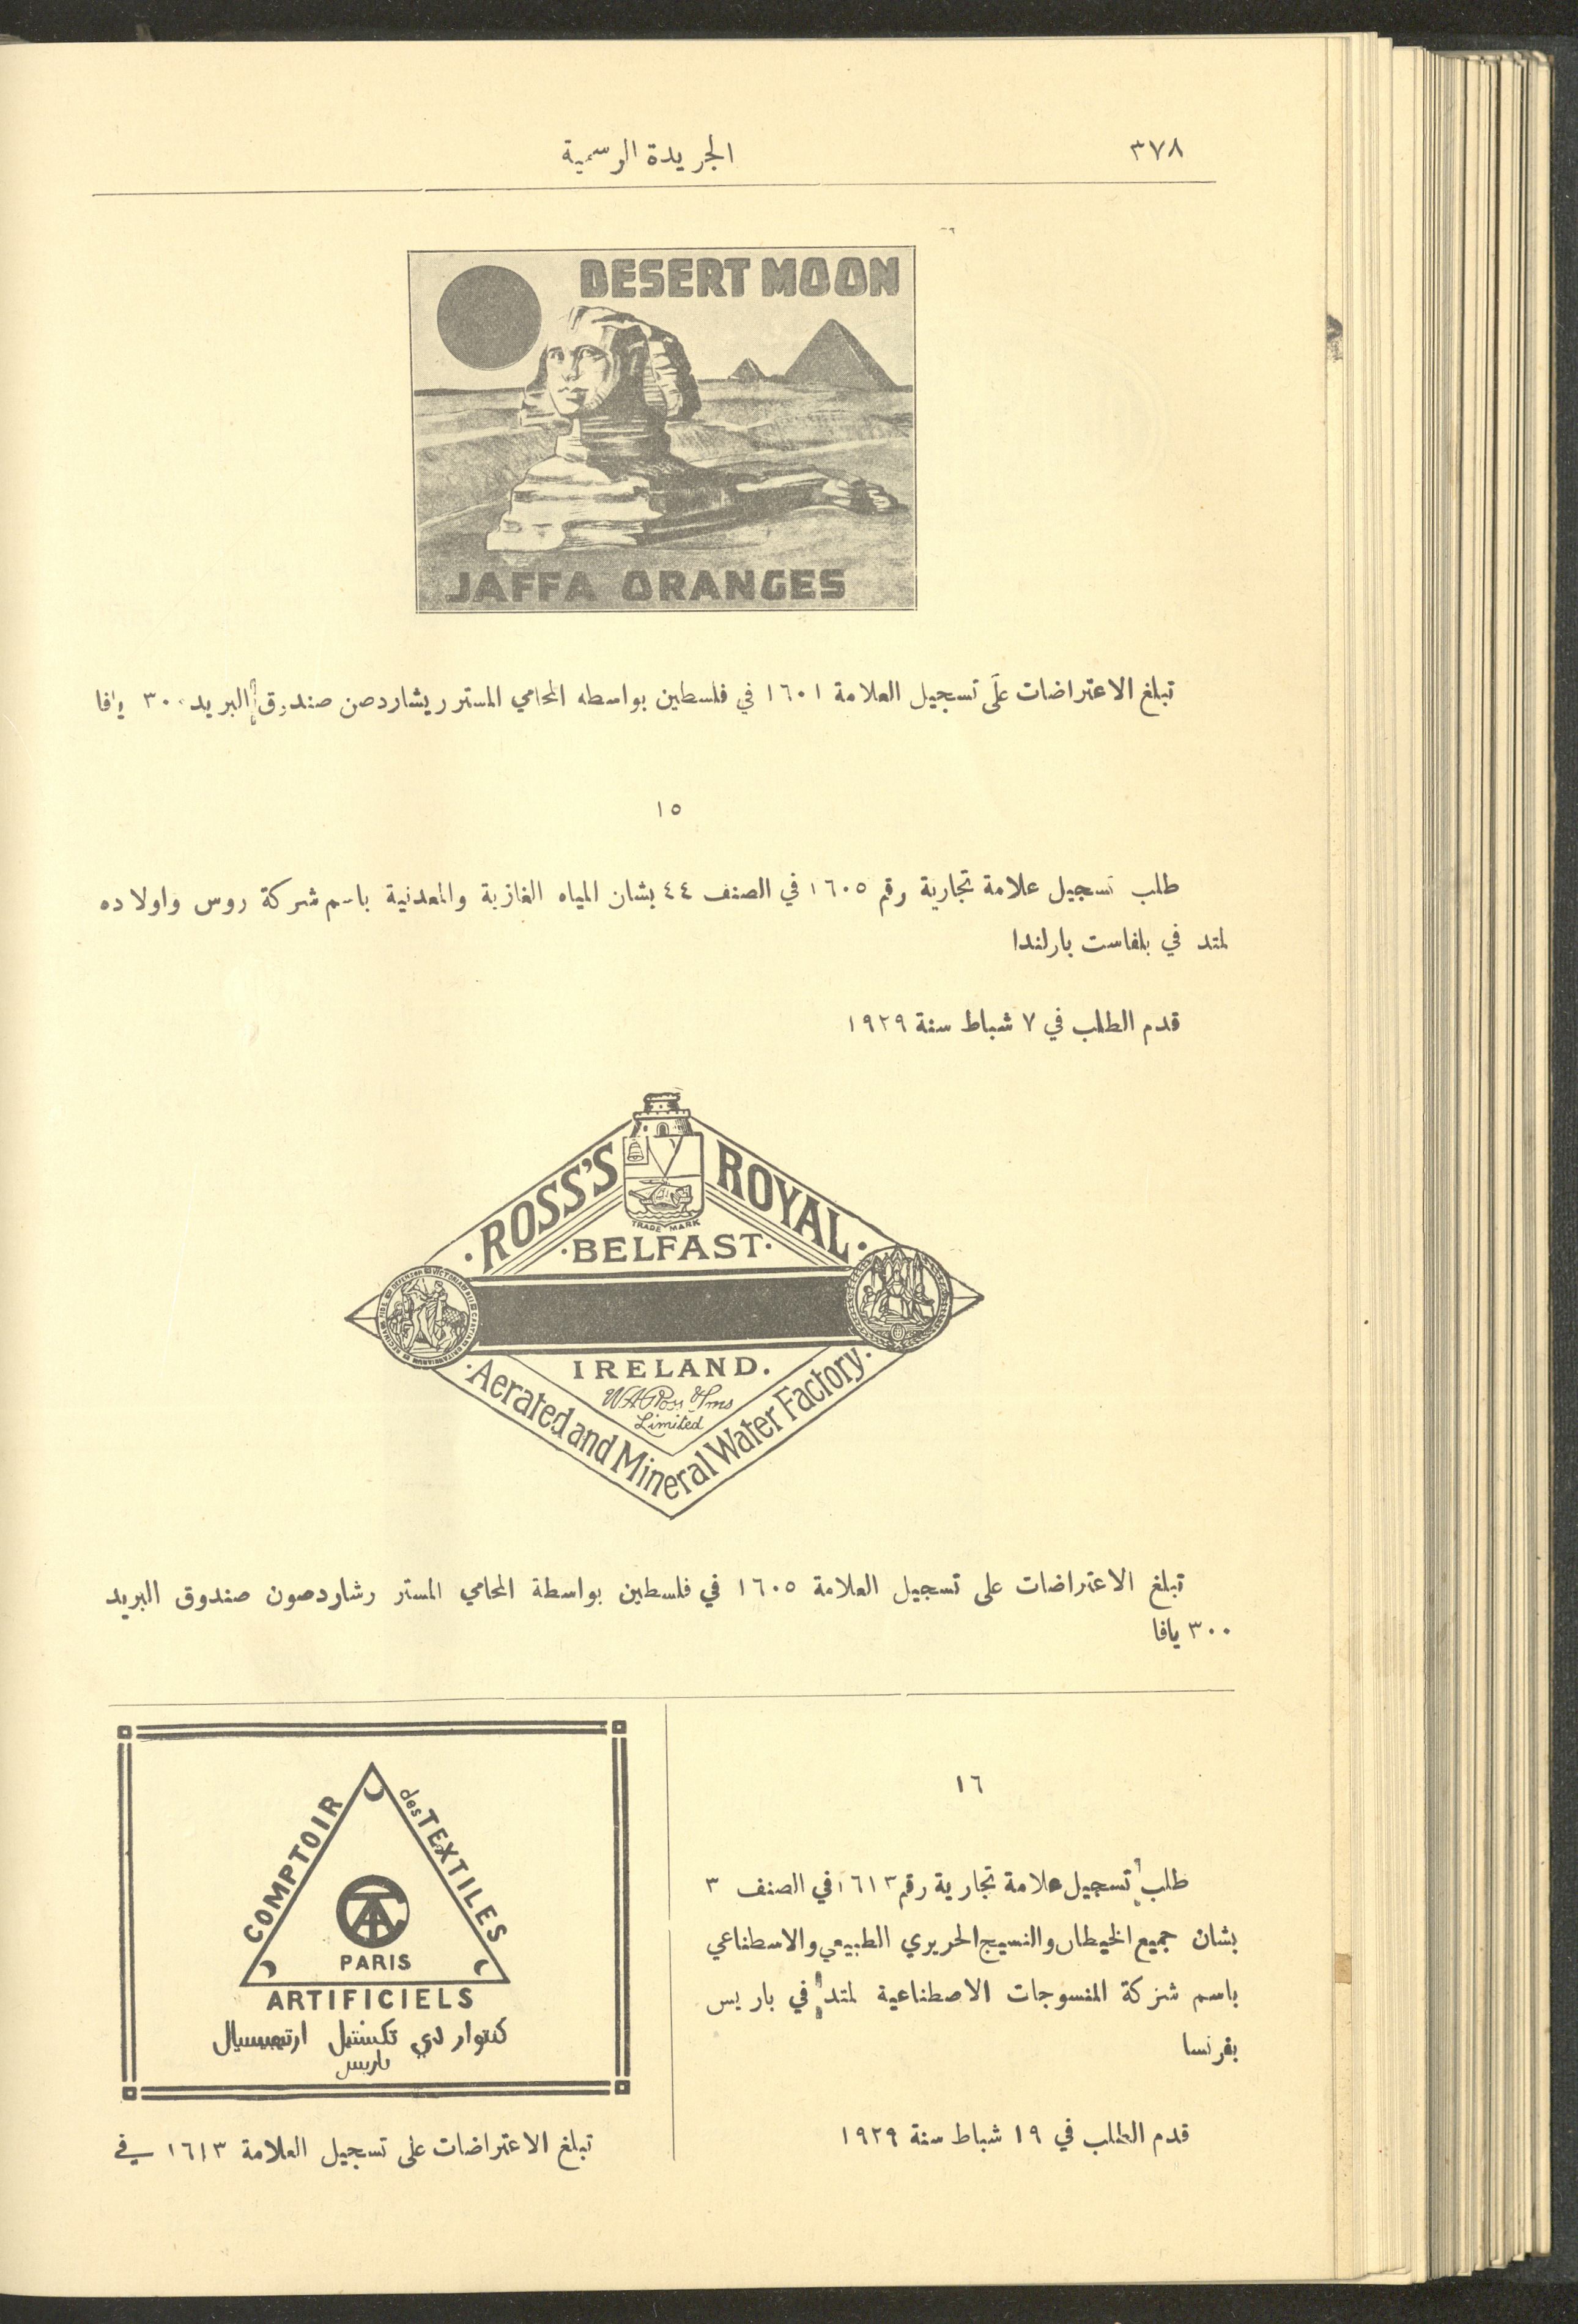 ٣٧٨
الجريدة الرسمية
DESERT MOON
JAFFA ORANGES
تبلغ الاعتراضات على تسجيل العلامة ١٦٠١ في فلسطين بواسطه المحامي المستر ريشاردصن صندوق البريد ٣٠٠ يافا
١٥
طلب تسجيل علامة تجارية رقم ١٦٠٥ في الصنف ٤٤ بشان المياه الغازية والمعدنية باسم شركة روس واولاده
لمتد في بلفاست بارلندا
قدم الطلب في ٧ شباط سنة ١٩٢٩
ROSS'S ROYAL
TRADE MARK
BELFAST
IRELAND.
W.A. Ross & Sons
Limited
Aerated and Mineral Water Factory
تبلغ الاعتراضات على تسجيل العلامة ١٦٠٥ في فلسطين بواسطة المحامي المستر رشاردصون صندوق البريد
٣٠٠ يافا
١٦
طلب تسجيل علامة تجارية رقم ١٦١٣ في الصنف ٣
بشان جميع الخيطان والنسيج الحريري الطبيعي والاسطناعي
باسم شركة المنسوجات الاصطناعية لمتد في باريس
بفرنسا
قدم الطلب في ١٩ شباط سنة ١٩٢٩
COMPTOIR des TEXTILES
PARIS
ARTIFICIELS
كنتوار دي تكستيل ارتيفيسيال
باريس
تبلغ الاعتراضات على تسجيل العلامة ١٦١٣ في